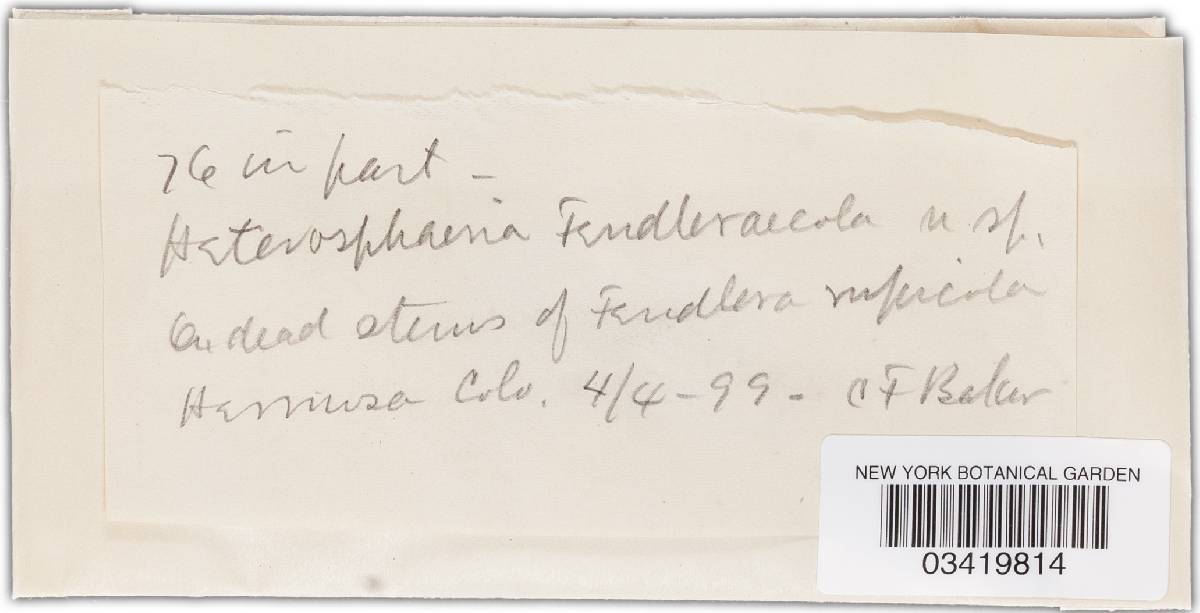 76 in part -
Heterosphaeria Fendleraecola n. sp.
On dead stems of Fendlera rupicola
Hermosa Colo. 4/4-99- C F Baker
NEW YORK BOTANICAL GARDEN
03419814